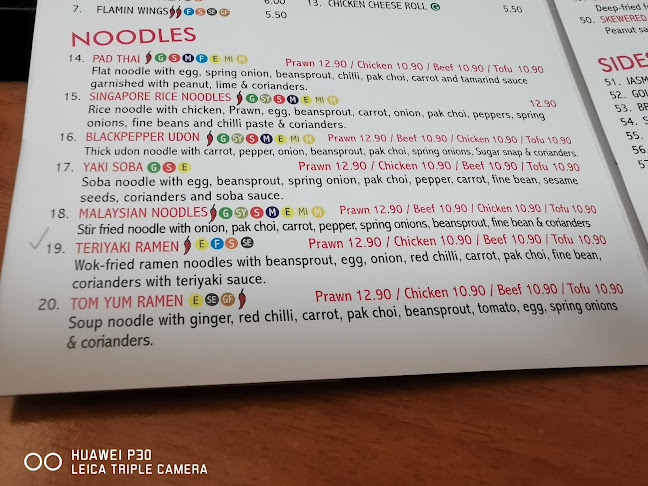 7. FLAMIN WINGS F S SE GF 5.50
6.00
13. CHICKEN CHEESE ROLL G 5.50
Deep-fried
50. SKEWERED
Peanut
NOODLES
14. PAD THAI G S M F E MI M Prawn 12.90 / Chicken 10.90 / Beef 10.90 / Tofu 10.90
Flat noodle with egg, spring onion, beansprout, chilli, pak choi, carrot and tamarind sauce
garnished with peanut, lime & corianders.
15. SINGAPORE RICE NOODLES G SY S M E MI M 12.90
Rice noodle with chicken, Prawn, egg, beansprout, carrot, onion, pak choi, peppers, spring
onions, fine beans and chilli paste & corianders.
16. BLACKPEPPER UDON G SY S M E MI M Prawn 12.90 / Beef 10.90 / Chicken 10.90 / Tofu 10.90
Thick udon noodle with carrot, pepper, onion, beansprout, pak choi, spring onions, Sugar snap & corianders.
17. YAKI SOBA G S E Prawn 12.90 / Chicken 10.90 / Beef 10.90 / Tofu 10.90
Soba noodle with egg, beansprout, spring onion, pak choi, pepper, carrot, fine bean, sesame
seeds, corianders and soba sauce.
18. MALAYSIAN NOODLES G SY S M E MI M Prawn 12.90 / Beef 10.90 / Chicken 10.90 / Tofu 10.90
Stir fried noodle with onion, pak choi, carrot, pepper, spring onions, beansprout, fine bean & corianders
19. TERIYAKI RAMEN E F S SE Prawn 12.90 / Chicken 10.90 / Beef 10.90 / Tofu 10.90
Wok-fried ramen noodles with beansprout, egg, onion, red chilli, carrot, pak choi, fine bean,
corianders with teriyaki sauce.
20. TOM YUM RAMEN E SE GF Prawn 12.90 / Chicken 10.90 / Beef 10.90 / Tofu 10.90
Soup noodle with ginger, red chilli, carrot, pak choi, beansprout, tomato, egg, spring onions
& corianders.
SIDES
51. JASM
52. GO
53. B
54.
55.
56
HUAWEI P30
LEICA TRIPLE CAMERA